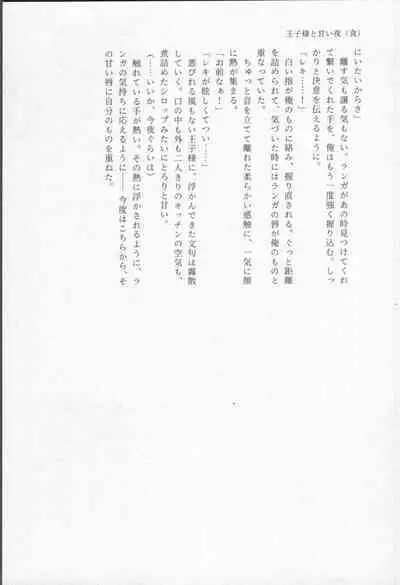 王子様と甘い夜（食）
にいたいからさ」
離す気も譲る気もない。ランガがあの時見つけてくれ
て繋いでくれた手を、俺はもう一度強く握り込む。しっ
かりと決意を伝えるように。
「レキ……！」
白い指が俺のものに絡み、握り直される。ぐっと距離
を詰められて、気づいた時にはランガの唇が俺のものと
重なっていた。
ちゅっと音を立てて離れた柔らかい感触に、一気に顔
に熱が集まる。
「お前なぁ！」
「レキが眩しくてつい……」
悪びれる風もない王子様に、浮かんできた文句は霧散
していく。口の中も外も二人きりのキッチンの空気も、
煮詰めたシロップみたいにとろりと甘い。
（……いいか、今夜ぐらいは）
触れている手が熱い。その熱に浮かされるように、ラ
ンガの気持ちに応えるように――今度はこちらから、そ
の甘い唇に自分のものを重ねた。